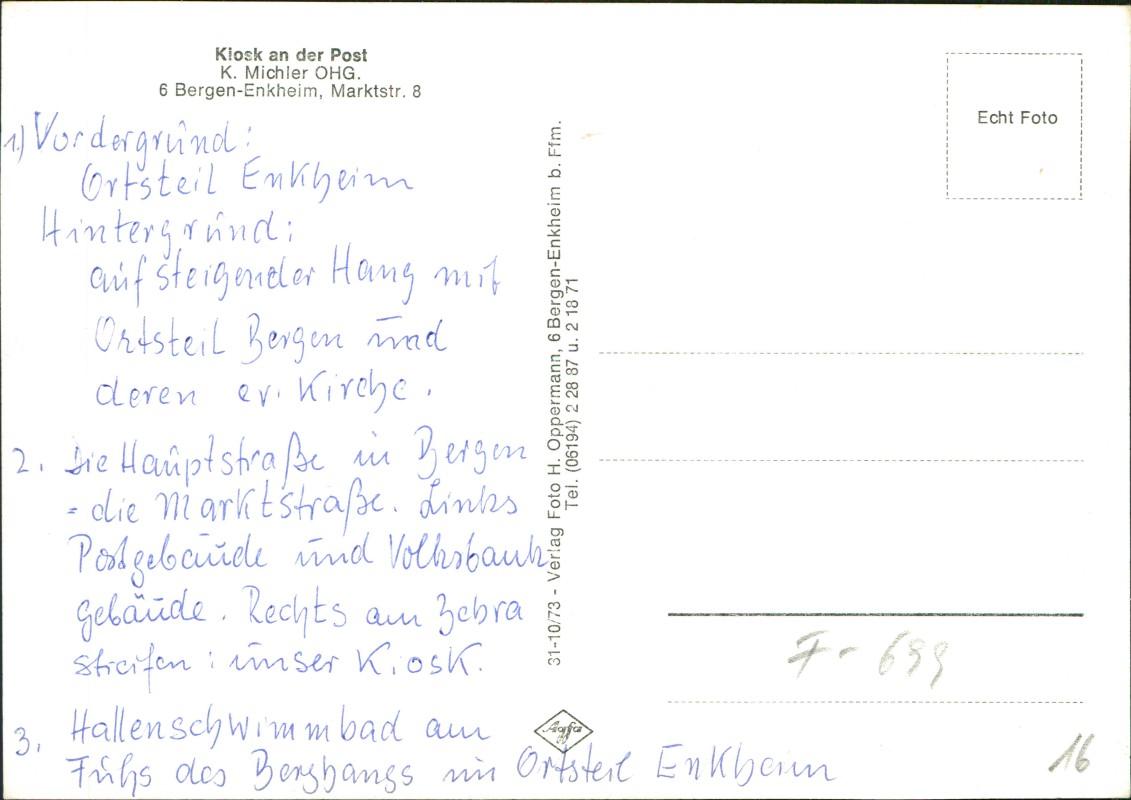 Kiosk an der Post
K. Michler OHG.
6 Bergen-Enkheim, Marktstr. 8
Echt Foto
1.) Vordergrund:
Ortsteil Enkheim
Hintergrund:
aufsteigender Hang mit
Ortsteil Bergen und
deren ev. Kirche.
2. Die Hauptstraße in Bergen
= die Marktstraße. Links
Postgebäude und Volksbank
gebäude. Rechts am Zebra
streifen: unser Kiosk.
3. Hallenschwimmbad am
Fuße des Berghangs im Ortsteil Enkheim
31-10/73 - Verlag Foto H. Oppermann, 6 Bergen-Enkheim b. Ffm.
Tel. (06194) 2 28 87 u. 2 18 71
Agfa
F- 699
16